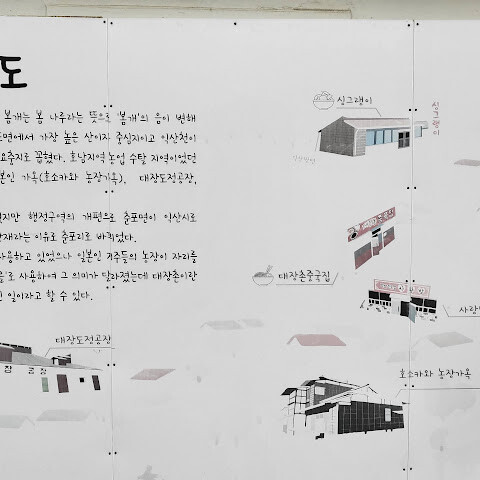 도
봄개는 봄 나루라는 뜻으로 '봄개'의 음이 변해
면에서 가장 높은 산이자 중심지이고 익산천이
요충지로 꼽혔다. 호남지역 농업 수탈 지역이었던
본인 가옥(호소카와 농장가옥), 대장도정공장,
지만 행정구역의 개편으로 춘포면이 익산시로
잔재라는 이유로 춘포리로 바뀌었다.
사용하고 있었으나 일본인 거주들의 농장이 자리를
로 사용하여 그 의미가 달라졌는데 대장촌이란
일이라고 할 수 있다.
싱그랭이
싱그랭이
대장촌중국집
사랑
대장도정공장
공장
호소카와 농장가옥